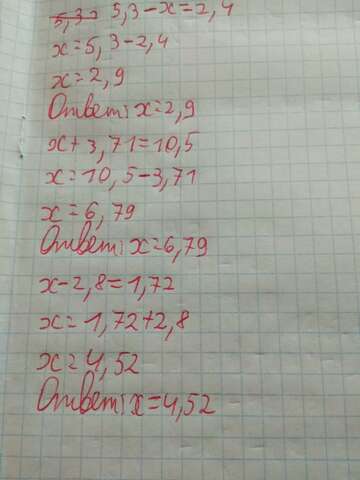 5,3 5,3-x=2,4
x=5,3-2,4
x=2,9
Ответ: x=2,9
x+3,71=10,5
x=10,5-3,71
x=6,79
Ответ: x=6,79
x-2,8=1,72
x=1,72+2,8
x=4,52
Ответ: x=4,52